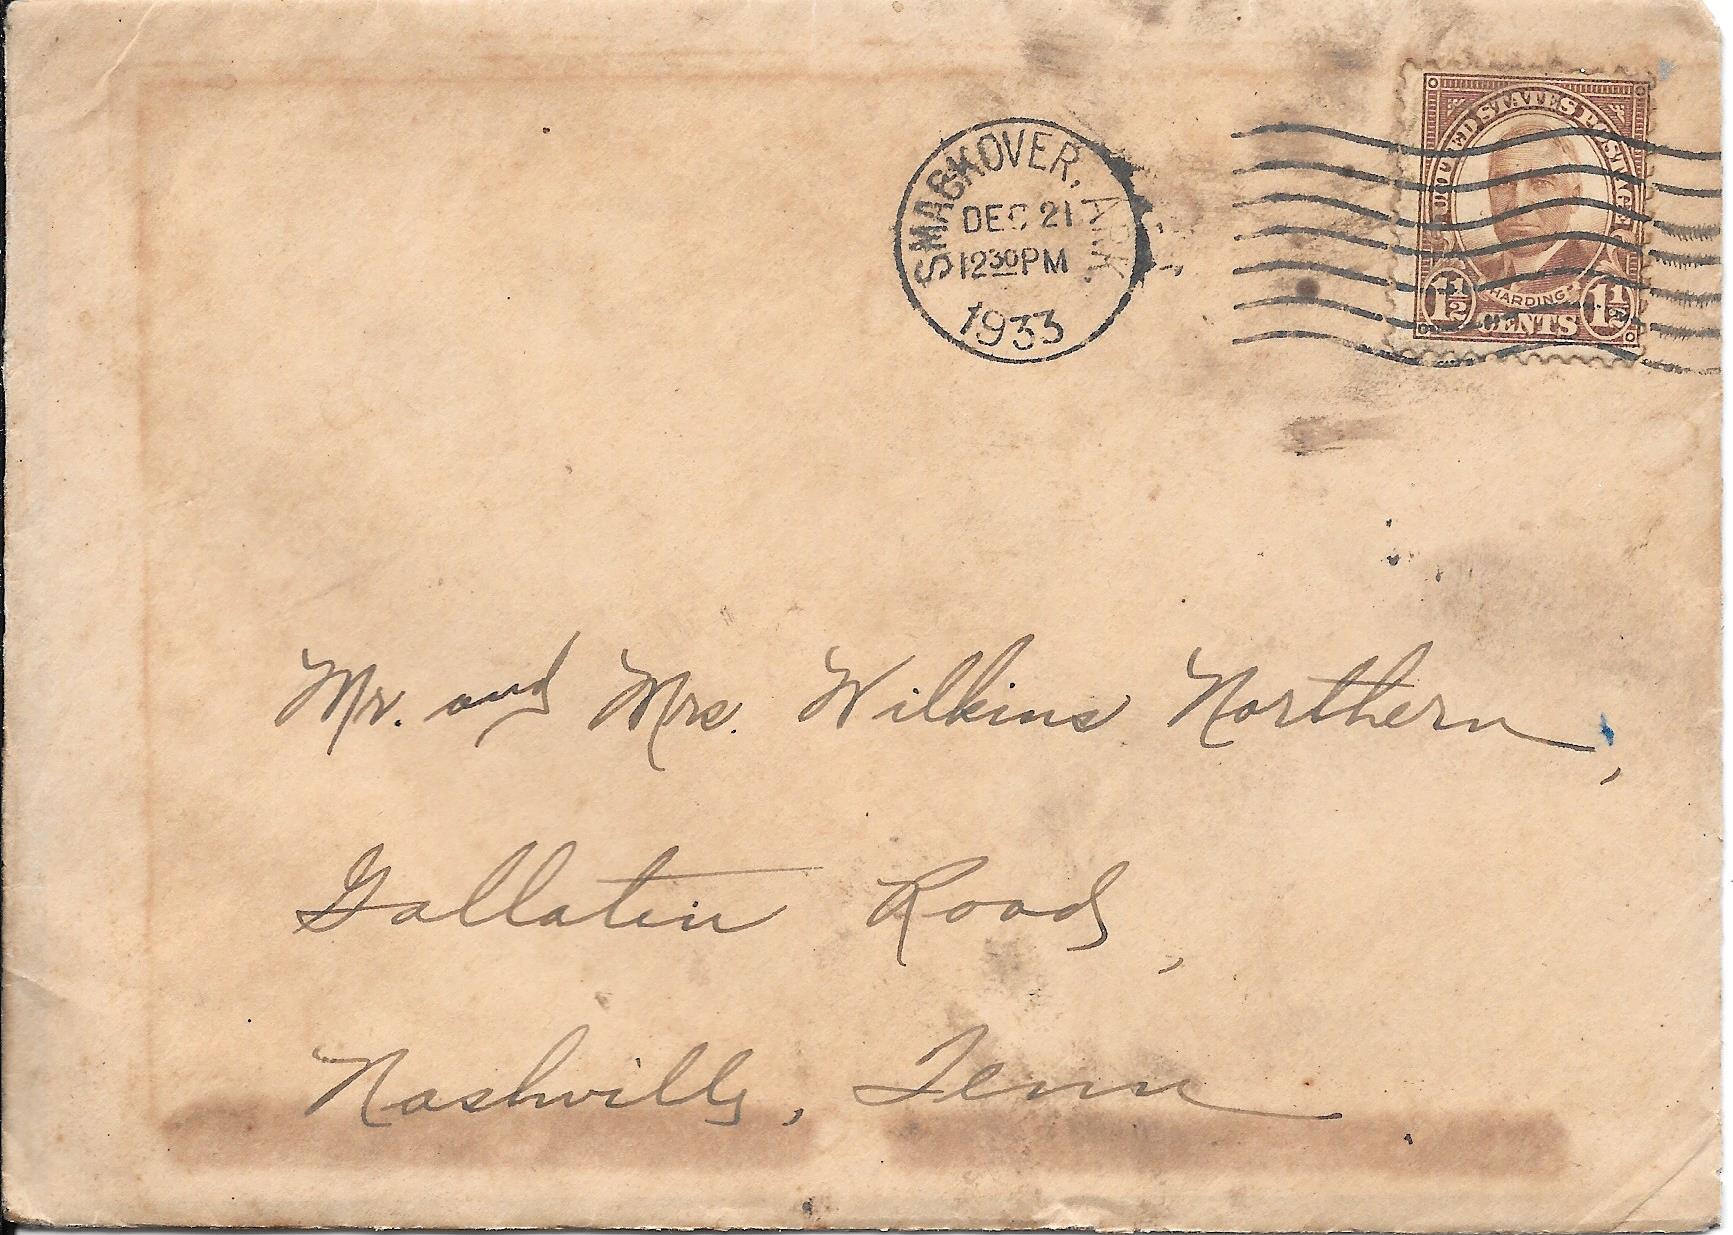 SMACKOVER, ARK.
DEC 21
12 30 PM
1933
UNITED STATES POSTAGE
HARDING
1 1/2 CENTS 1 1/2
Mr. and Mrs. Wilkins Northern,
Gallatin Road,
Nashville, Tenn